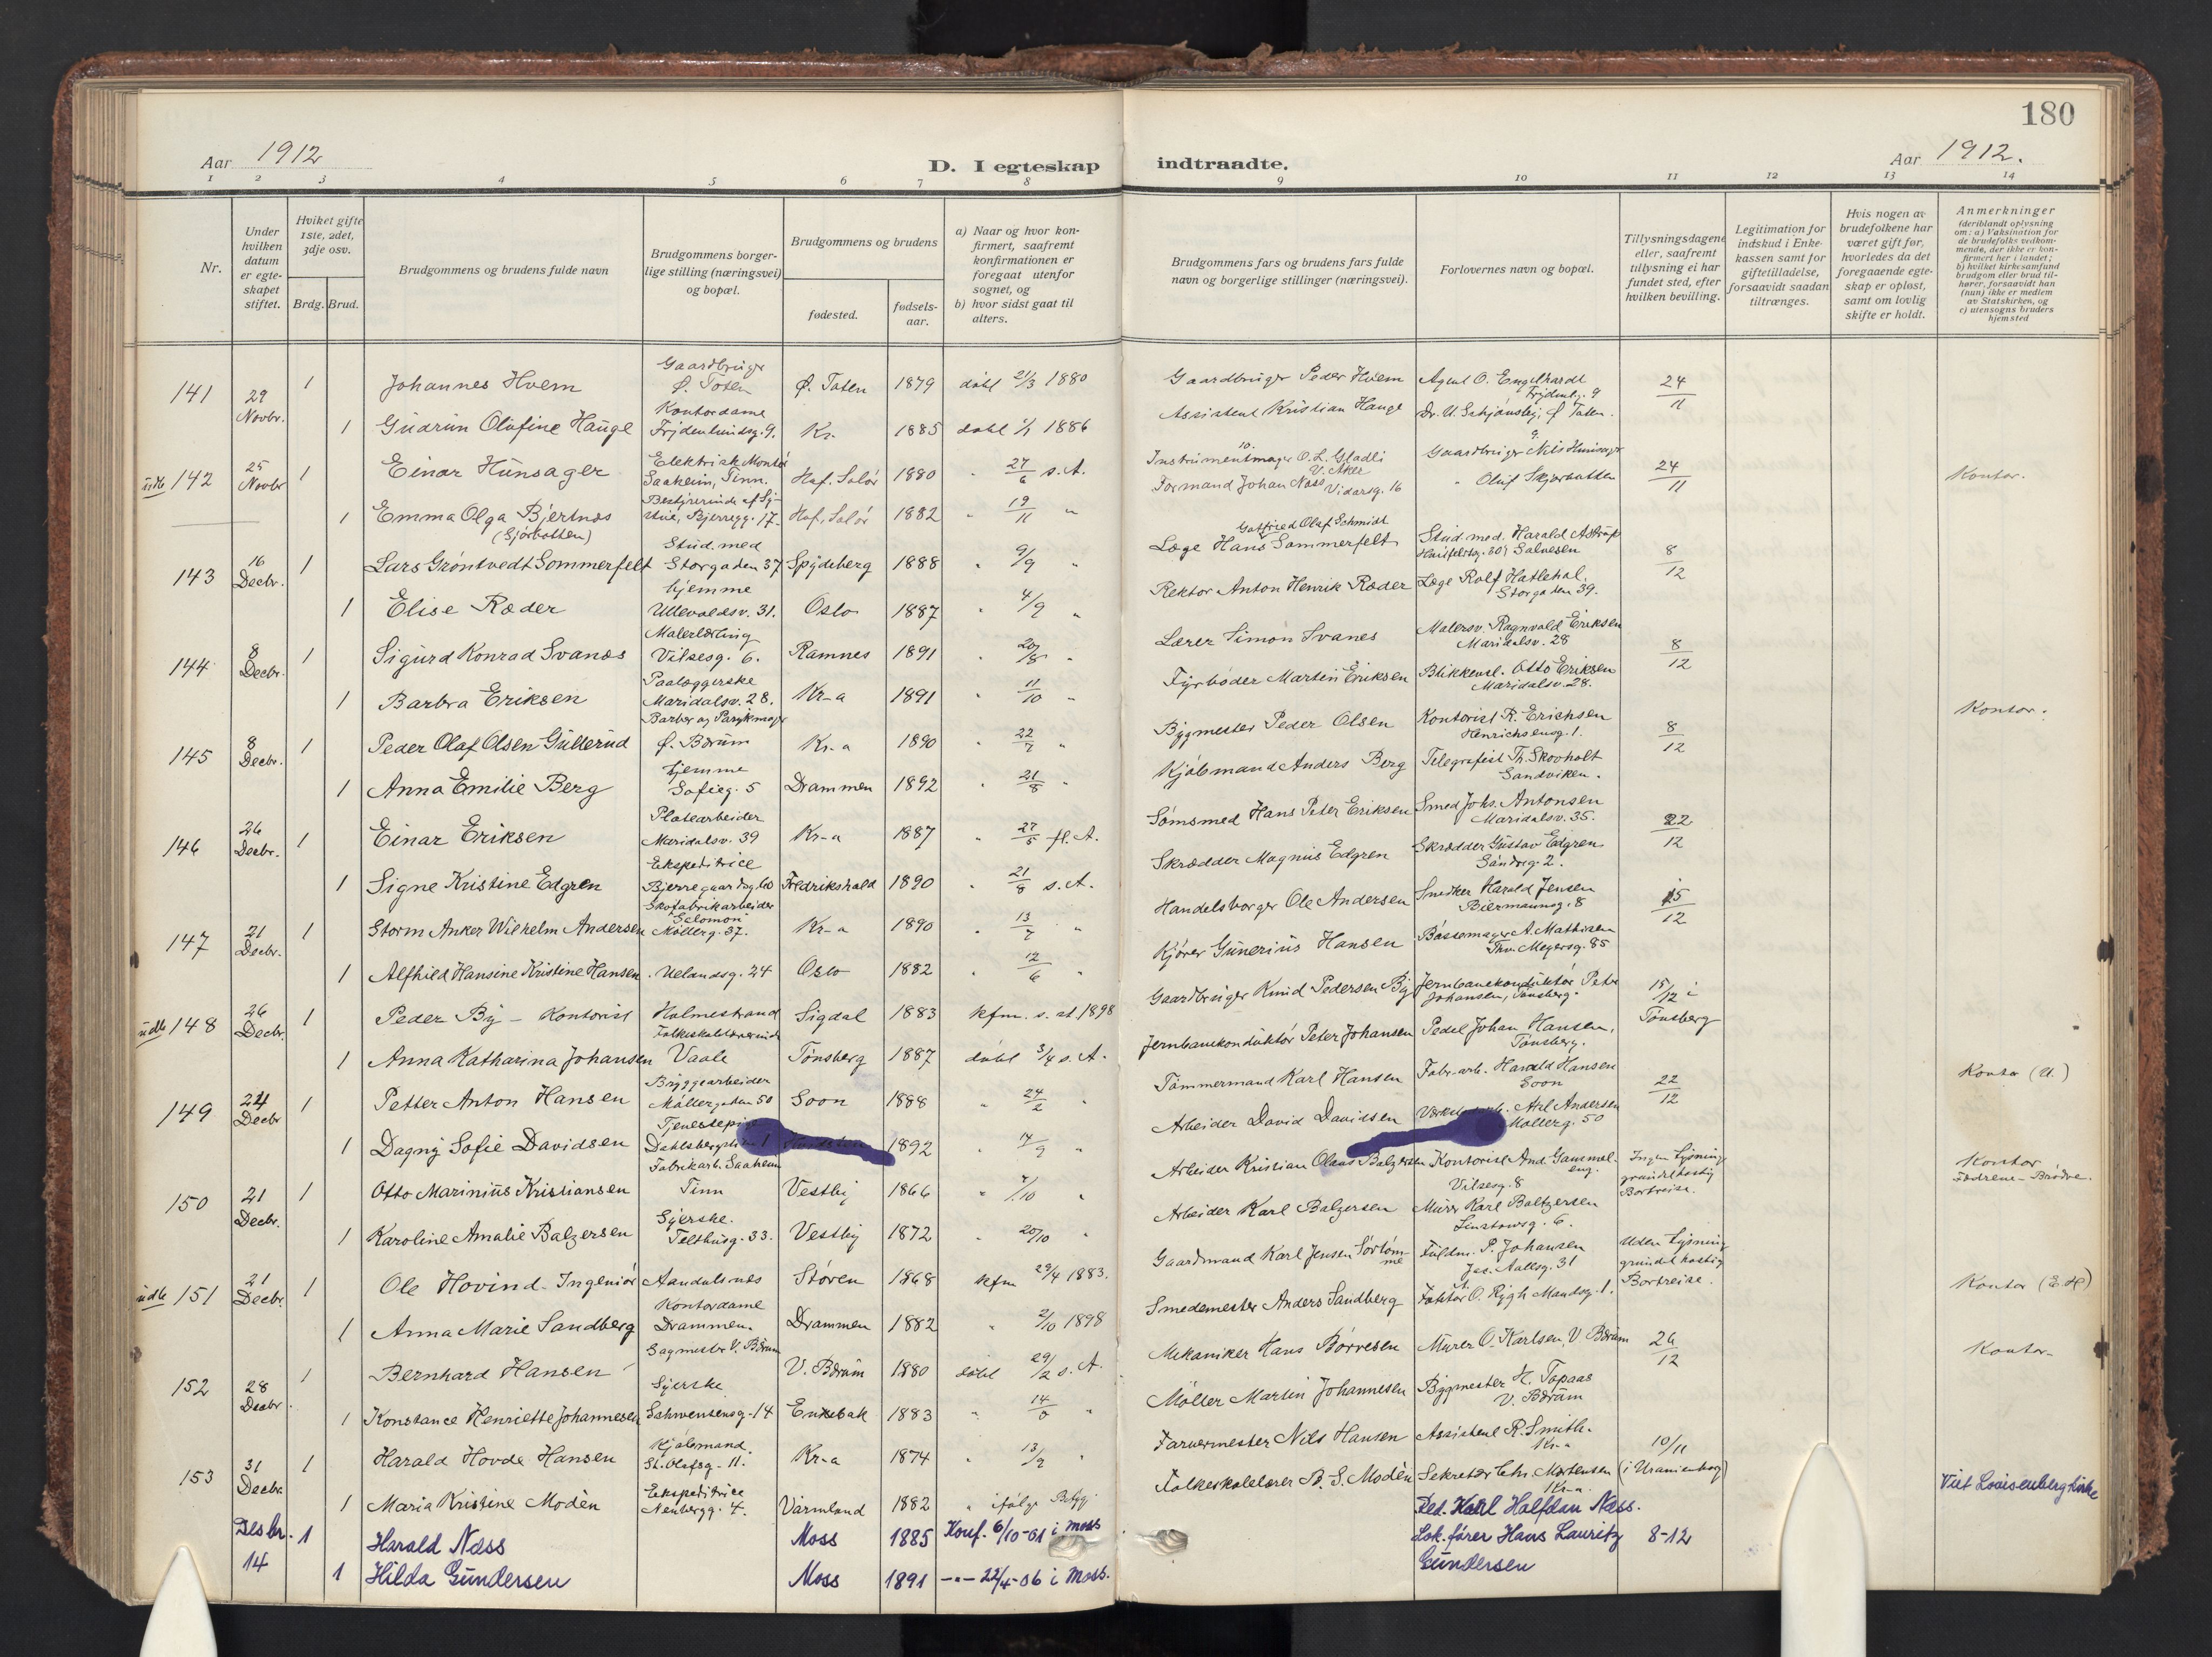 180
Aar 1912
D. I egteskap indtraadte.
Aar 1912.
1 2 3 4 5 6 7 8 9 10 11 12 13 14
Nr.
Under hvilken datum er egteskapet stiftet.
Hviket gifte 1ste, 2det, 3dje osv.
Brdg. Brud.
Brudgommens og brudens fulde navn
Brudgommens borgerlige stilling (næringsvei) og bopæl.
Brudgommens og brudens
fødested.
fødselsaar.
a) Naar og hvor konfirmert, saafremt konfirmationen er foregaat utenfor sognet, og
b) hvor sidst gaat til alters.
Brudgommens fars og brudens fars fulde navn og borgerlige stillinger (næringsvei).
Forlovernes navn og bopæl.
Tillysningsdagene eller, saafremt tillysning ei har fundet sted, efter hvilken bevilling.
Legitimation for indskud i Enkekassen samt for giftetilladelse, forsaavidt saadan tiltrænges.
Hvis nogen av brudefolkene har været gift før, hvorledes da det foregaaende egteskap er opløst, samt om lovlig skifte er holdt.
Anmerkninger (deriblandt oplysning om: a) Vaksination for de brudefolks vedkommende, der ikke er konfirmert her i landet; b) hvilket kirkesamfund brudgom eller brud tilhører, forsaavidt han (hun) ikke er medlem av Statskirken, og c) utensogns bruders hjemsted
141 29 Novbr. 1 Johannes Hvem Gaardbruger Ø. Toten Ø. Toten 1879 døbt 21/3 1880 Gaardbruger Peder Hvem Agent O. Engelhardt 24/11
1 Gudrun Olufine Hauge Kontordame Frydenlundsg. 9. Kr. 1885 døbt 1/1 1886 Assistent Kristian Hauge Dr. U. Ø. Toten.
udb 142 25 Novbr 1 Einar Hunsager Elektrisk Montør Saaheim, Tinn. Hof. Solør 1880 " 27/6 s. A. Instrumentmager O. L. Gladli V. Aker Gaardbruger Nils Hunsager 24/11 Kontor.
1 Emma Olga Bjertnæs Bjerregg. 17. Hof, Solør 1882 " 19/11 " Formand Johan Næss Vidarsg. 16 " Oluf
143 16 Decbr. 1 Lars Grøntvedt Sommerfelt Stud. med Storgaden 37 Spydeberg 1888 " 9/9 " Læge Hans Gotfried Olaf Schmidt Sommerfelt Stud. med. Harald Astrup Salvesen 8/12
1 Elise Ræder hjemme Ullevoldsv. 31. Oslo 1887 " 4/9 " Rektor Anton Henrik Ræder Læge Rolf Hatlehol. Storgaden 39.
144 8 Decbr. 1 Sigurd Konrad Svanæs Malerlærling Vilsesg. 6. Ramnes 1891 " 20/8 " Lærer Simon Svanes Malersv. Ragnvald Eriksen Maridalsv. 28 8/12
1 Barbra Eriksen Paalæggerske Maridalsv. 28. Kr-a 1891 " 11/10 " Fyrbøder Martin Eriksen Blikkensl. Otto Eriksen Maridalsv. 28.
145 8 Decbr. 1 Peder Olaf Olsen Gullerud Barber og Parykmager Ø. Bærum Kr-a 1890 " 22/7 " Bygmester Peder Olsen Kontorist R. Erichsen Henrichsensg. 1. 8/12 Kontor.
1 Anna Emilie Berg hjemme Sofieg. 5 Drammen 1892 " 21/8 " Kjøbmand Anders Berg Telegrafist Th. Skovholt Sandviken.
146 26 Decbr. 1 Einar Eriksen Platearbeider Maridalsv. 39 Kr-a 1887 " 27/5 fl. A. Sømsmed Hans Peter Eriksen Smed Johs. Antonsen Maridalsv. 35. 22/12
1 Signe Kristine Edgren Ekspeditrice Fredrikshald 1890 " 21/8 s. A. Skrædder Magnus Edgren Skrædder Gustav Edgren Sandvig. 2.
147 21 Decbr. 1 Storm Anker Wilhelm Andersen Skofabrikarbeider "Salomon" Møllerg. 37. Kr-a 1890 " 13/7 " Handelsborger Ole Andersen Snedker Harald Jensen Biermannsg. 8 15/12
1 Alfhild Hansine Kristine Hansen. Uelandsg. 24 Oslo 1882 " 12/6 " Kjører Gunerius Hansen Børstemager A. Mathisen Thv. Meyersg. 85
udb 148 26 Decbr. 1 Peder By - Kontorist Holmestrand Sigdal 1883 kfm. s. st 1898 Gaardbruger Knud Pedersen By Jernbanekonduktør Peter Johansen, Tønsberg. 15/12 i Tønsberg
1 Anna Katharina Johansen Folkeskolelærerinde Vaale Tønsberg 1887 døbt 3/4 s. A. Jernbanekonduktør Peter Johansen Pedel Johan Hansen, Tønsberg.
149 24 Decbr 1 Petter Anton Hansen Bryggearbeider Møllergaden 50 Soon 1888 " 24/2 " Tømmermand Karl Hansen Fabr-arb. Harald Hansen Soon 22/12 Kontor (U.)
1 Dagny Sofie Davidsen Tjenestepi 1892 " 17/9 " Arbeider David Davidsen Axl Andersen Møllerg. 50
150 21 Decbr. 1 Otto Marinius Kristiansen Fabrikarb. Saaheim Tinn Vestby 1866 " 7/10 " Arbeider Kristian Olaus Balzersen Kontorist And. Gammeleng. Vilsesg. 8 Ingen Lysning grundet hastig Bortreise. Kontor Fædrene-Brødre.
1 Karoline Amalie Balzersen Syerske. Telthusg. 33. Vestby 1872 " 20/10 " Arbeider Karl Balzersen Murer Karl Baltzersen Linstowsg. 6.
udb 151 21 Decbr. 1 Ole Hovind - Ingeniør Aandalsnes Støren 1868 kfm 29/4 1883. Gaardmand Karl Jensen Fuldm. P. Johansen Jac. Aallsg. 31 Uden Lysning grundet hastig Bortreise. Kontor
1 Anna Marie Sandberg Kontordame Drammen. Drammen 1882 " 2/10 1898 Smedemester Anders Sandberg Faktor O. Rygh Mandsg. 1.
152 28 Decbr. 1 Bernhard Hansen Sagmester V. Bærum V. Bærum 1880 døbt 29/2 s. A. Mekaniker Hans Børresen Murer O. Karlsen, V. Bærum 26/12 Kontor-
1 Konstance Henriette Johannesen Syerske Schwensensg. 14 Enebak 1883 " " Møller Martin Johannesen Bygmester H. Topaas V. Bærum
153 31 Decbr 1 Harald Hovde Hansen Kjøbmand. St. Olafsg. 11. Kr-a 1874 " 13/9 " Farvermester Nils Hansen Assistent R. Smith. Kr-a 10/11 (i Uranienborg)
1 Maria Kristine Modèn Ekspeditrice Neubergg. 4. Värmland 1882 " ifølge Folkeskolelærer B. S. Modèn Sekretær Chr. Mortensen Kr-a.
Desbr. 14 1 Harald Næss Moss 1885 Konf. 6/10-01 i Moss Karl Halfdan Næss. Viet Lovisenberg kirke
1 Hilda Gundersen Moss 1891 -"- 22/4-06 i Moss. Lok.fører Hans Lauritz Gundersen 8-12